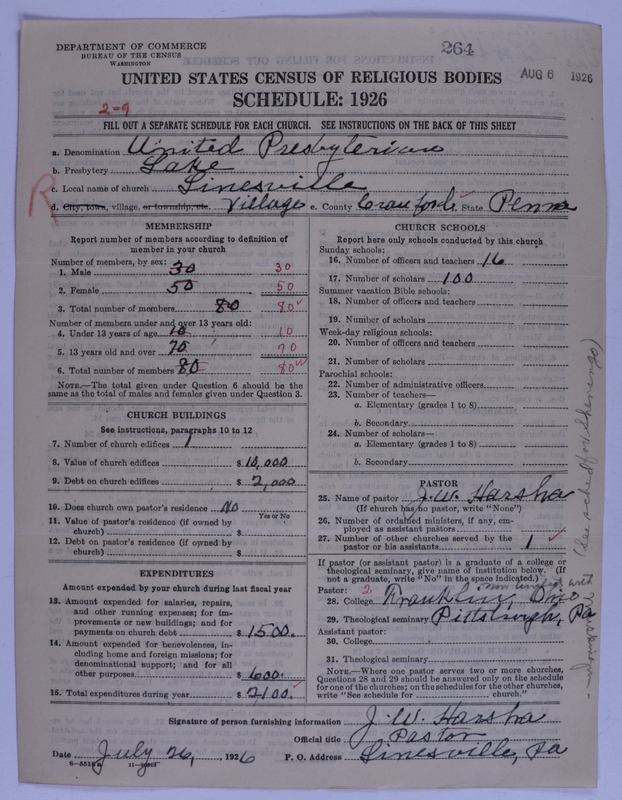 264
DEPARTMENT OF COMMERCE
BUREAU OF THE CENSUS
WASHINGTON
AUG 6 1926
UNITED STATES CENSUS OF RELIGIOUS BODIES
SCHEDULE: 1926
2-9
FILL OUT A SEPARATE SCHEDULE FOR EACH CHURCH. SEE INSTRUCTIONS ON THE BACK OF THIS SHEET
a. Denomination United Presbyterian
b. Presbytery Lake
c. Local name of church Linesville
R
d. City, town, village, or township, etc. Village e. County Crawford f. State Penna
MEMBERSHIP
Report number of members according to definition of
member in your church
Number of members, by sex:
1. Male 30 30
2. Female 50 50
3. Total number of members 80 80
Number of members under and over 13 years old:
4. Under 13 years of age 10 10
5. 13 years old and over 70 70
6. Total number of members 80 80
NOTE.—The total given under Question 6 should be the
same as the total of males and females given under Question 3.
CHURCH BUILDINGS
See instructions, paragraphs 10 to 12
7. Number of church edifices 1
8. Value of church edifices $ 10,000
9. Debt on church edifices $ 2,000
10. Does church own pastor's residence? No
Yes or No
11. Value of pastor's residence (if owned by
church) $
12. Debt on pastor's residence (if owned by
church) $
EXPENDITURES
Amount expended by your church during last fiscal year
13. Amount expended for salaries, repairs,
and other running expenses; for im-
provements or new buildings; and for
payments on church debt $ 1500.
14. Amount expended for benevolences, in-
cluding home and foreign missions; for
denominational support; and for all
other purposes $ 600.
15. Total expenditures during year $ 2100.
CHURCH SCHOOLS
Report here only schools conducted by this church
Sunday schools:
16. Number of officers and teachers 16
17. Number of scholars 100
Summer vacation Bible schools:
18. Number of officers and teachers
19. Number of scholars
Week-day religious schools:
20. Number of officers and teachers
21. Number of scholars
Parochial schools:
22. Number of administrative officers
23. Number of teachers—
a. Elementary (grades 1 to 8)
b. Secondary
24. Number of scholars—
a. Elementary (grades 1 to 8)
b. Secondary
PASTOR
25. Name of pastor J. W. Harsha
(If church has no pastor, write "None")
26. Number of ordained ministers, if any, em-
ployed as assistant pastors
27. Number of other churches served by the
pastor or his assistants 1
If pastor (or assistant pastor) is a graduate of a college or
theological seminary, give name of institution below. (If
not a graduate, write "No" in the space indicated.)
Pastor: 2. now united with
28. College Franklin, Ohio
29. Theological seminary Pittsburgh, Pa
Assistant pastor:
30. College
31. Theological seminary
NOTE.—Where one pastor serves two or more churches,
Questions 28 and 29 should be answered only on the schedule
for one of the churches; on the schedules for the other churches,
write "See schedule for church."
(See sched for Shenango)
Signature of person furnishing information J. W. Harsha
Official title Pastor
Date July 26, 1926 P. O. Address Linesville, Pa